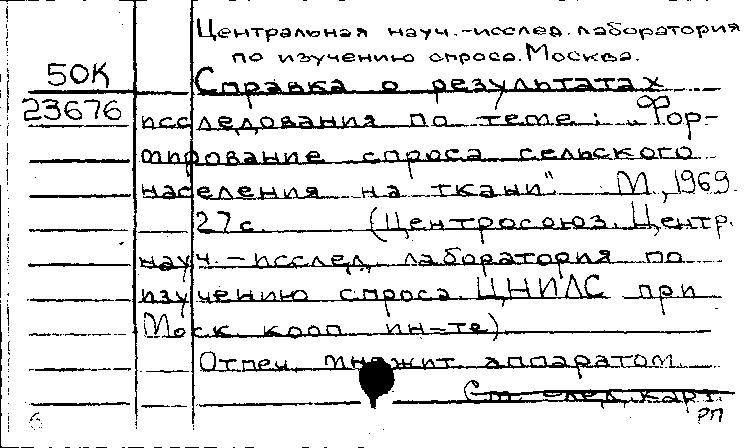 Центральная науч.-исслед. лаборатория
по изучению спроса. Москва.
50К
Справка о результатах
23676
исследования по теме: „Фор-
мирование спроса сельского
населения на ткани". М., 1969.
27с. (Центросоюз. Центр.
науч.-исслед. лаборатория по
изучению спроса ЦНИЛС при
Моск. кооп. ин-те).
Отпеч. множит. аппаратом.
См. след. карт.
6
РП